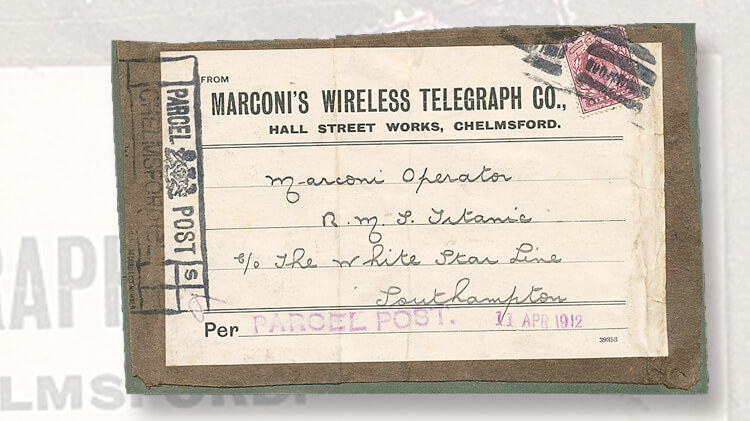 FROM
MARCONI'S WIRELESS TELEGRAPH CO.,
HALL STREET WORKS, CHELMSFORD.
Marconi Operator
R.M.S. Titanic
c/o The White Star Line
Southampton
Per PARCEL POST. 11 APR 1912
39353
PARCEL POST
CHELMSFORD
S
RAPH
ELMSFORD.